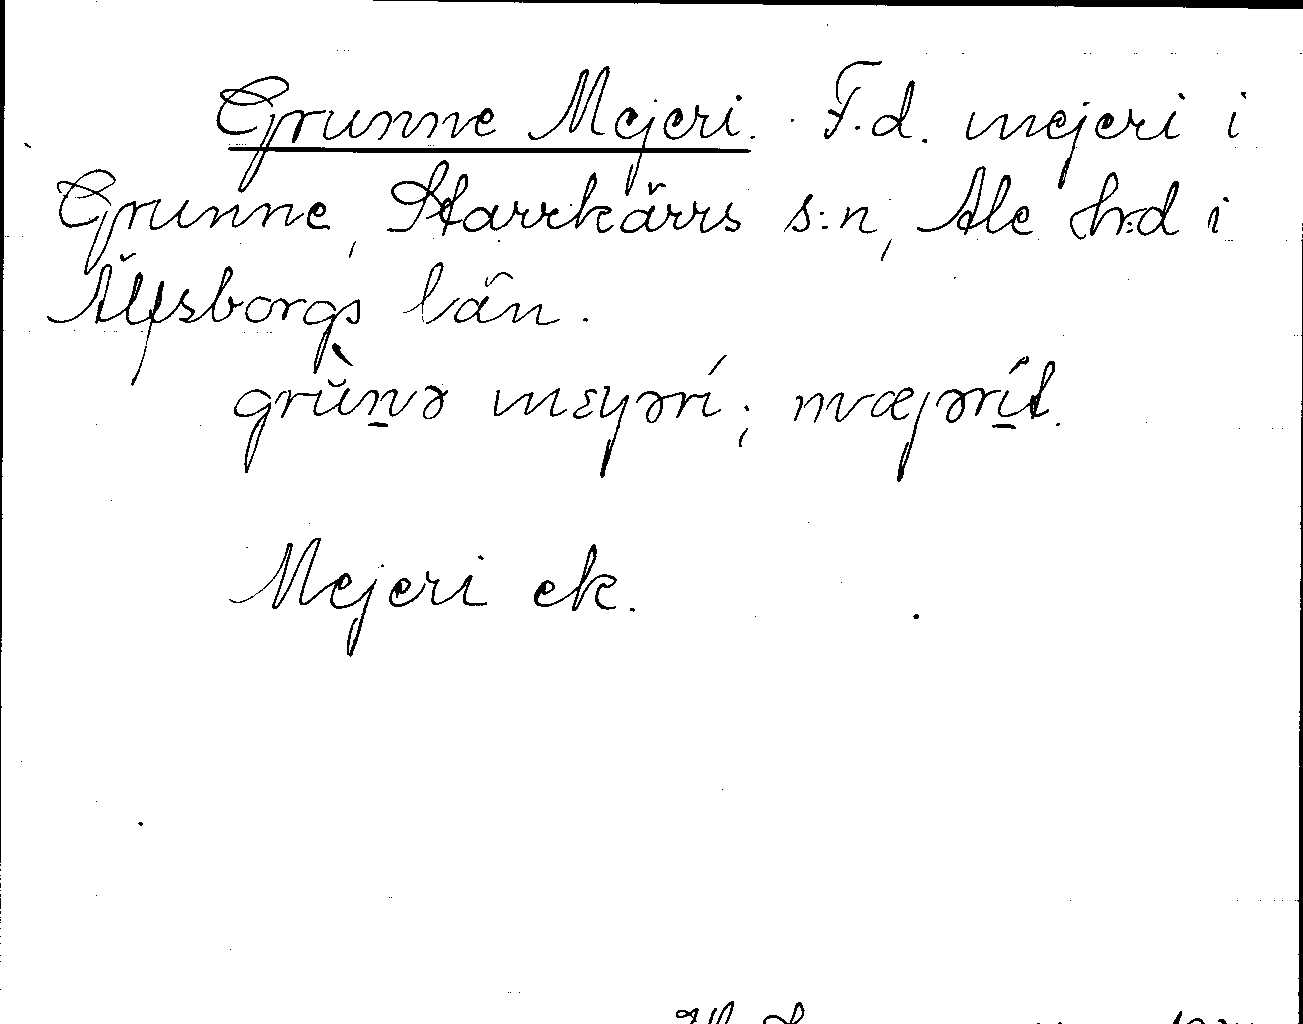 Grunne Mejeri. F.d. mejeri i
Grunne, Starrkärrs s:n, Ale h:d i
Älfsborgs län.
grùn̲ə mɛyərí; mæjərít.
Mejeri ek.